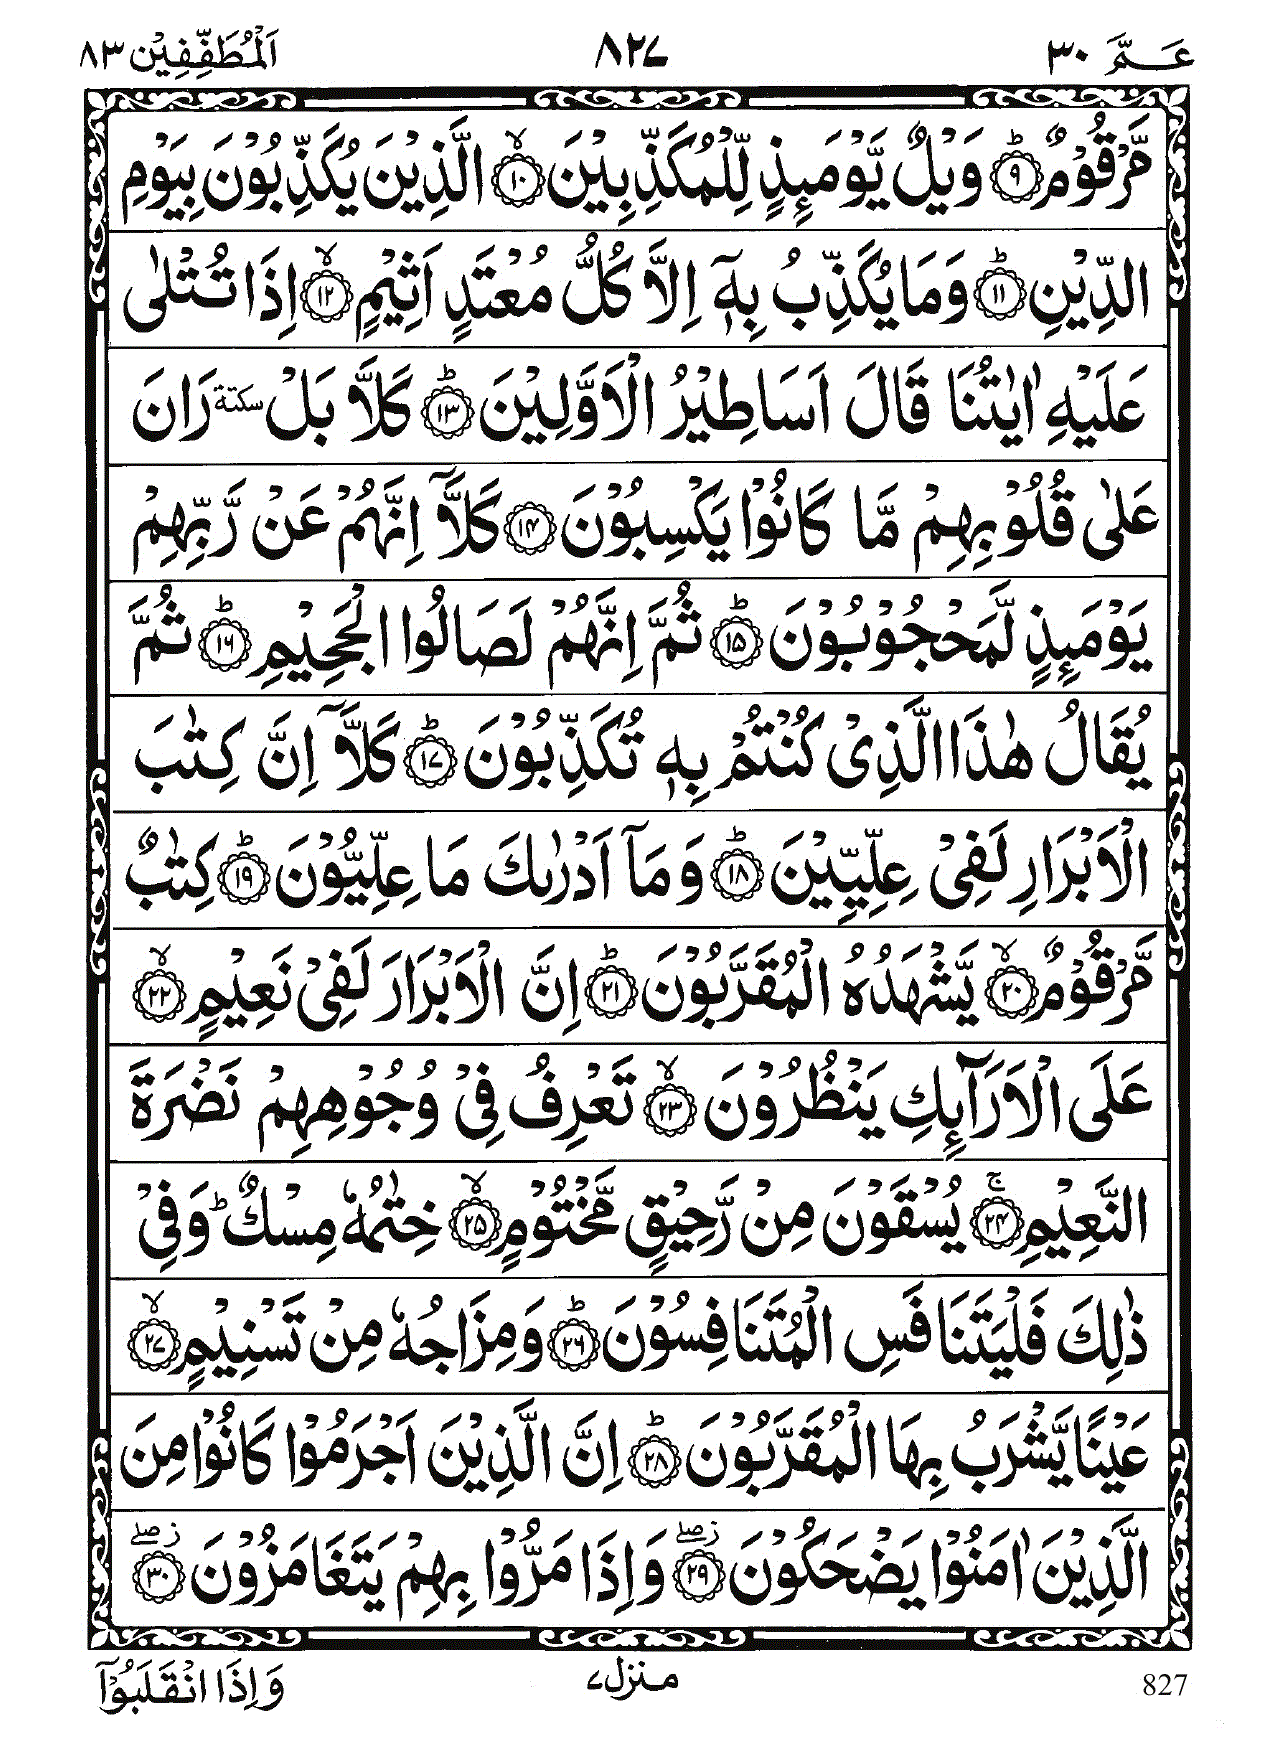 عَـمَّ ٣٠ ٨٢٧ اَلْمُطَفِّفِيْن ٨٣
مَّرْقُوْمٌ ؕ‏ ﴿۹﴾ وَيْلٌ يَّوْمَٮِٕذٍ لِّلْمُكَذِّبِيْنَ ۙ‏ ﴿۱۰﴾ الَّذِيْنَ يُكَذِّبُوْنَ بِيَوْمِ
الدِّيْنِ ؕ‏ ﴿۱۱﴾ وَمَا يُكَذِّبُ بِهٖۤ اِلَّا كُلُّ مُعْتَدٍ اَثِيْمٍ ۙ‏ ﴿۱۲﴾ اِذَا تُتْلٰى
عَلَيْهِ اٰيٰتُنَا قَالَ اَسَاطِيْرُ الْاَوَّلِيْنَ ؕ‏ ﴿۱۳﴾ كَلَّا بَلْ سكتة رَانَ
عَلٰى قُلُوْبِهِمْ مَّا كَانُوْا يَكْسِبُوْنَ‏ ﴿۱۴﴾ كَلَّاۤ اِنَّهُمْ عَنْ رَّبِّهِمْ
يَوْمَٮِٕذٍ لَّمَحْجُوْبُوْنَ ؕ‏ ﴿۱۵﴾ ثُمَّ اِنَّهُمْ لَصَالُوا الْجَحِيْمِ ؕ‏ ﴿۱۶﴾ ثُمَّ
يُقَالُ هٰذَا الَّذِىْ كُنْتُمْ بِهٖ تُكَذِّبُوْنَ ؕ‏ ﴿۱۷﴾ كَلَّاۤ اِنَّ كِتٰبَ
الْاَبْرَارِ لَفِىْ عِلِّيِّيْنَ ؕ‏ ﴿۱۸﴾ وَمَاۤ اَدْرٰٮكَ مَا عِلِّيُّوْنَ ؕ‏ ﴿۱۹﴾ كِتٰبٌ
مَّرْقُوْمٌ ۙ‏ ﴿۲۰﴾ يَّشْهَدُهُ الْمُقَرَّبُوْنَ ؕ‏ ﴿۲۱﴾ اِنَّ الْاَبْرَارَ لَفِىْ نَعِيْمٍ ۙ‏ ﴿۲۲﴾
عَلَى الْاَرَآٮِٕكِ يَنْظُرُوْنَ ۙ‏ ﴿۲۳﴾ تَعْرِفُ فِىْ وُجُوْهِهِمْ نَضْرَةَ
النَّعِيْمِ ۚ‏ ﴿۲۴﴾ يُسْقَوْنَ مِنْ رَّحِيْقٍ مَّخْتُوْمٍ ۙ‏ ﴿۲۵﴾ خِتٰمُهٗ مِسْكٌ ؕ وَفِىْ
ذٰلِكَ فَلْيَتَنَافَسِ الْمُتَنَافِسُوْنَ ؕ‏ ﴿۲۶﴾ وَمِزَاجُهٗ مِنْ تَسْنِيْمٍ ۙ‏ ﴿۲۷﴾
عَيْنًا يَّشْرَبُ بِهَا الْمُقَرَّبُوْنَ ؕ‏ ﴿۲۸﴾ اِنَّ الَّذِيْنَ اَجْرَمُوْا كَانُوْا مِنَ
الَّذِيْنَ اٰمَنُوْا يَضْحَكُوْنَ ز صلے‏ ﴿۲۹﴾ وَاِذَا مَرُّوْا بِهِمْ يَتَغَامَزُوْنَ ز صلے‏ ﴿۳۰﴾
827 منزل ۷ وَاِذَا انْقَلَبُوْۤا